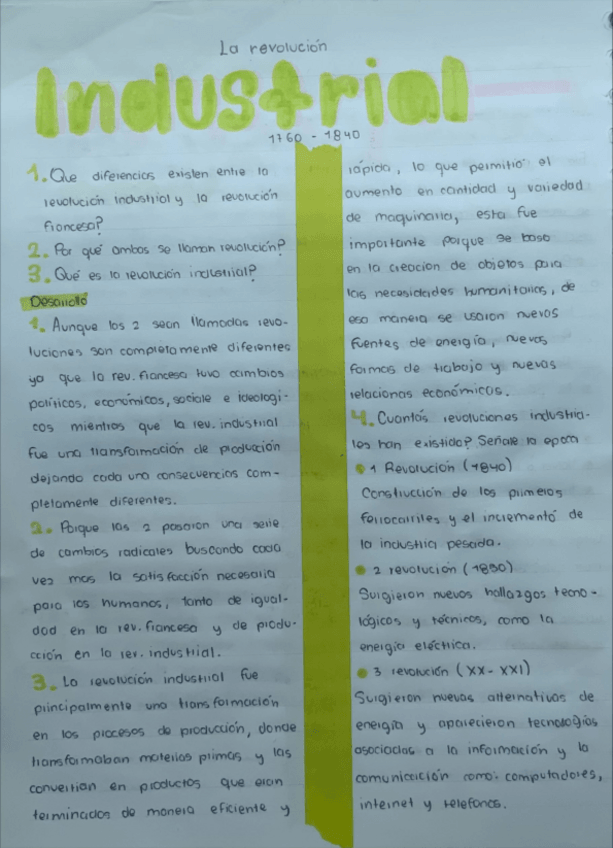 La revolución
Industrial
1760 - 1840
1. Que diferencias existen entre la
revolución industrial y la revolución
francesa?
2. Por qué ambas se llaman revolución?
3. Qué es la revolución industrial?
Desarrollo
1. Aunque las 2 sean llamadas revo-
luciones son completamente diferentes
ya que la rev. francesa tuvo cambios
políticos, económicos, sociale e ideologi-
cos mientras que la rev. industrial
fue una transformación de producción
dejando cada una consecuencias com-
pletamente diferentes.
2. Porque las 2 pasaron una serie
de cambios radicales buscando cada
vez mas la satisfacción necesaria
para los humanos, tanto de igual-
dad en la rev. francesa y de produ-
cción en la rev. industrial.
3. La revolución industrial fue
principalmente una transformación
en los procesos de producción, donde
transformaban materias primas y las
convertian en productos que eran
terminados de manera eficiente y
rápida, lo que permitió el
aumento en cantidad y variedad
de maquinaria, esta fue
importante porque se baso
en la creacion de objetos para
las necesidades humanitarias, de
esa manera se usaron nuevos
fuentes de energía, nuevas
formas de trabajo y nuevas
relaciones económicas.
4. Cuantas revoluciones industria-
les han existido? Señale la epoca
1 Revolución (1840)
Construcción de los primeros
ferrocarriles y el incremento de
la industria pesada.
2 revolución (1890)
Surgieron nuevos hallazgos tecno-
lógicos y técnicos, como la
energía eléctrica.
3 revolución (XX - XXI)
Surgieron nuevas alternativas de
energía y aparecieron tecnologías
asociadas a la información y la
comunicación como: computadores,
internet y telefonos.